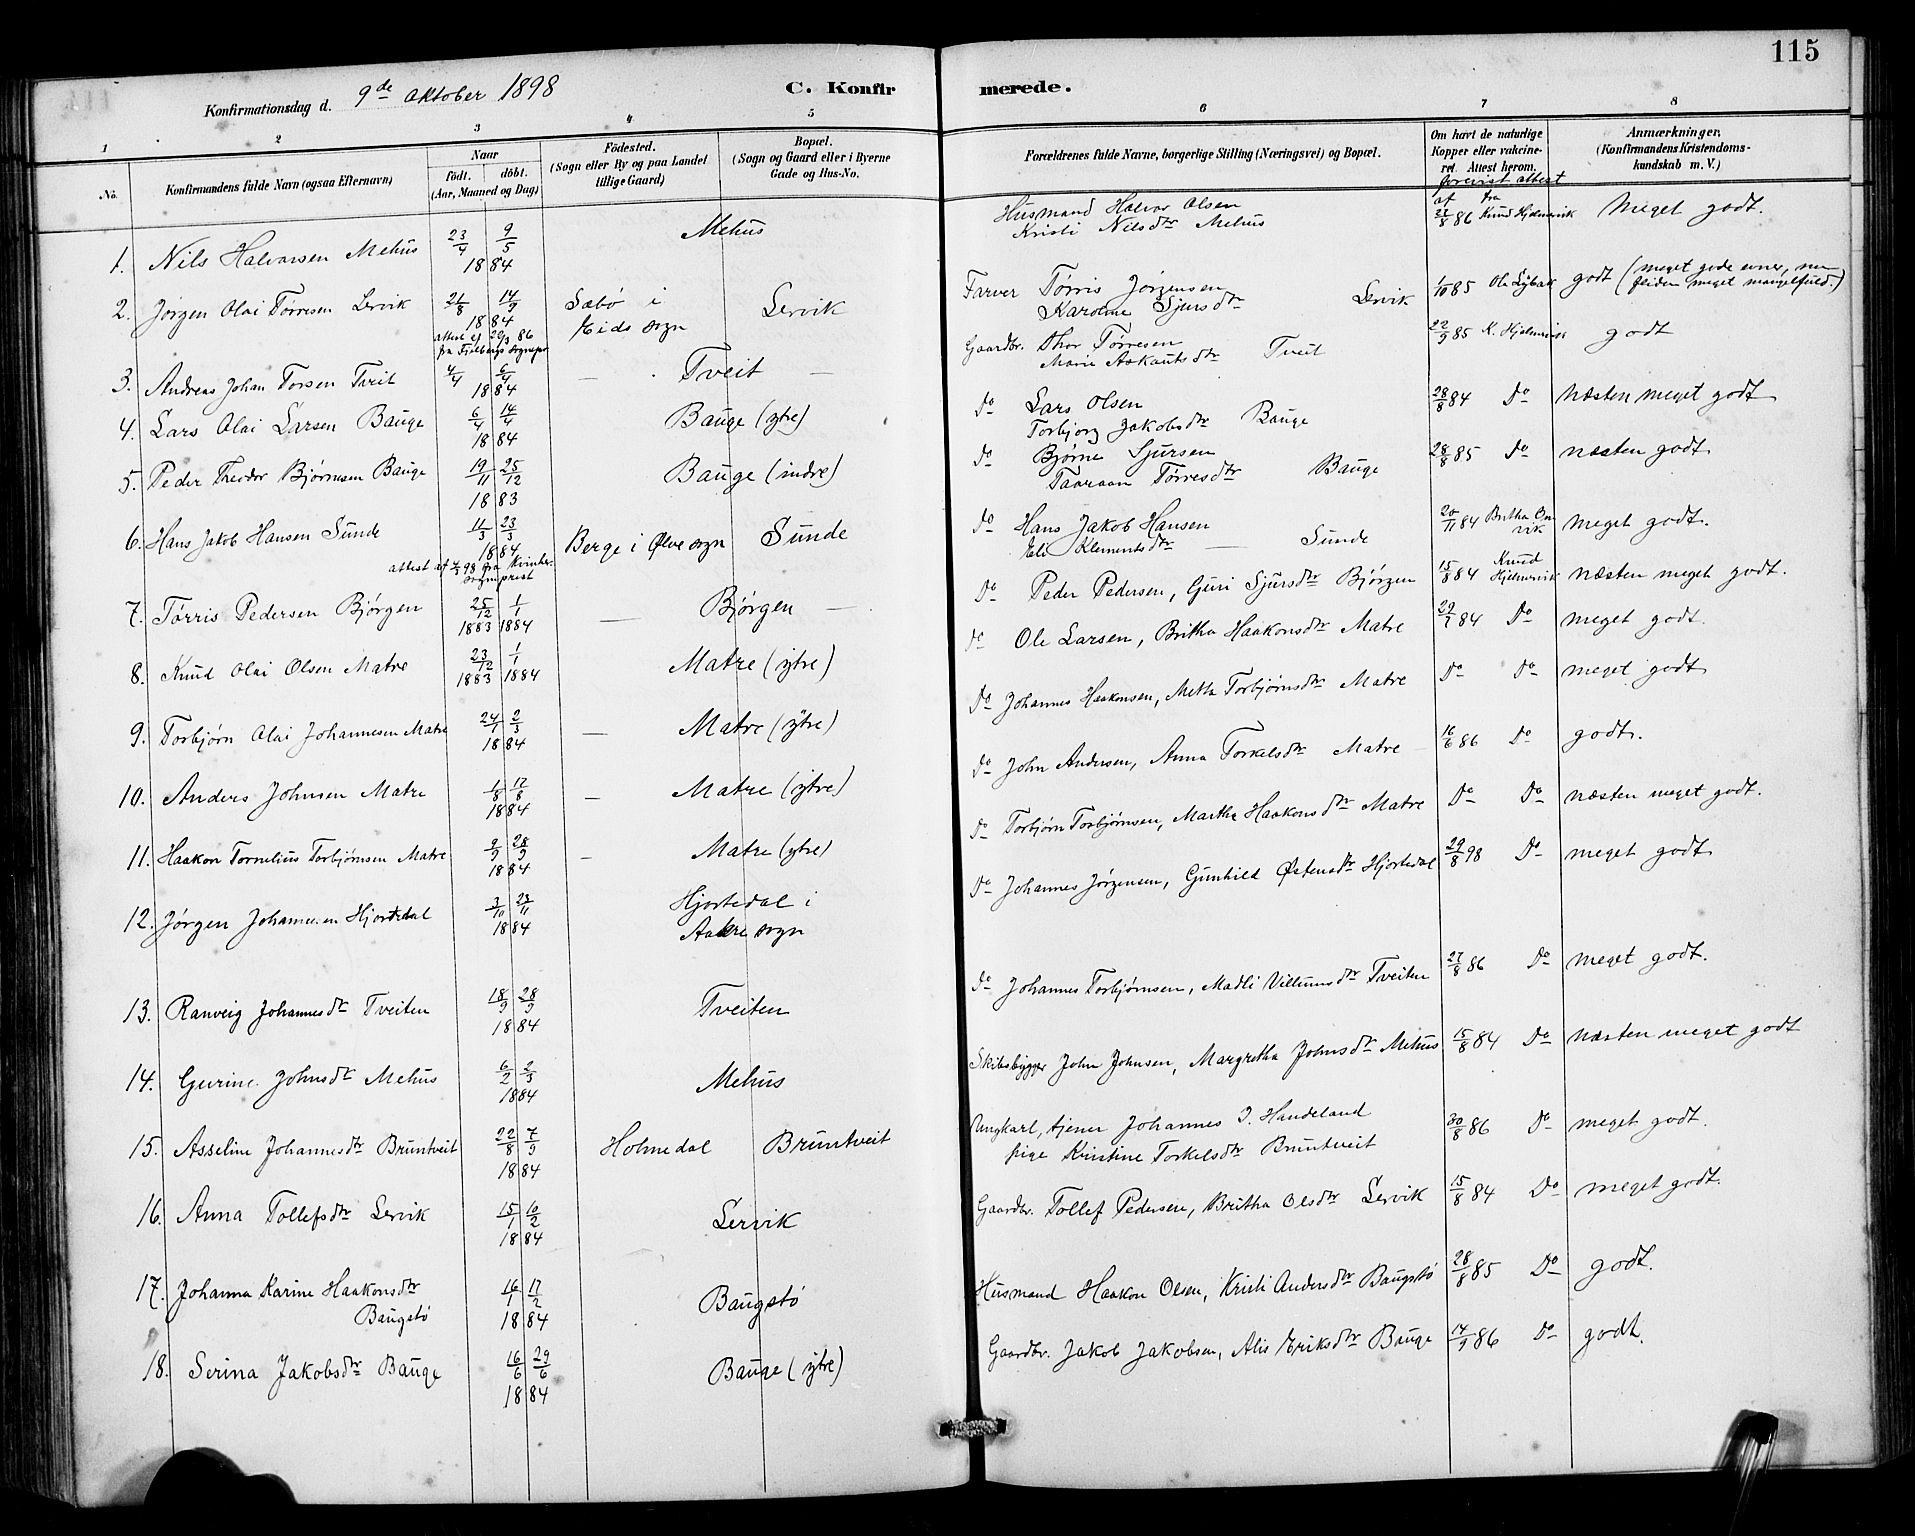 115
Konfirmationsdag d. 9de Oktober 1898
C. Konfirmerede.
1 2 3 4 5 6 7 8
No.
Konfirmandens fulde Navn (ogsaa Efternavn)
Naar
födt. döbt.
(Aar, Maaned og Dag)
Födested.
(Sogn eller By og paa Landet
tillige Gaard)
Bopæl.
(Sogn og Gaard eller i Byerne
Gade og Hus-No.
Forældrenes fulde Navne, borgerlige Stilling (Næringsvei) og Bopæl.
Om havt de naturlige
Kopper eller vakcine-
ret. Attest herom.
Anmærkninger,
(Konfirmandens Kristendoms-
kundskab m. V.)
forevist attest
af fra
1. Nils Halvorsen Mehus 23/4 9/5 1884 Mehus Husmand Halvor Olsen
Kristi Nilsdtr Mehus 22/8 86 Knud Hjelmevik Meget godt.
2. Jørgen Olai Tørresen Lervik 21/8 14/9 1884 Sæbø i
Eids sogn Lervik Farver Tørris Jørgensen
Karoline Sjursdtr Lervik 1/10 85 godt (meget gode evner, men
fliden meget mangelfuld.)
attest af 29/3 86
fra Fjelbergs sognepr
3. Andreas Johan Torsen Tveit 4/4 6/4 1884 — Tveit — Gaardbr. Thor Tørresen
Marie Askautsdtr Tveit 22/9 85 K. Hjelmevik godt
4. Lars Olai Larsen Bauge 6/4 14/4 1884 Bauge (ytre) Do Lars Olsen
Torbjorg Jakobsdtr Bauge 28/8 84 Do næsten meget godt
5. Peder Theodor Bjørnesen Bauge 19/11 25/12 1883 Bauge (indre) Do Bjørne Sjursen
Taaraan Tørresdtr Bauge 28/8 85 Do næsten godt
6. Hans Jakob Hansen Sunde 11/3 23/3 1884 Berge i Ølve sogn Sunde Do Hans Jakob Hansen
Eli Klementsdtr — Sunde 20/11 84 Britha meget godt.
attest af 98 fra Kvinher.
sogneprest
7. Tørris Pedersen Bjørgen 25/12 1883 1/1 1884 — Bjørgen — Do Peder Pedersen, Guri Sjursdtr Bjørgen 15/8 84 Knud
Hjelmevik næsten meget godt.
8. Knud Olai Olsen Matre 23/12 1883 1/1 1884 Matre (ytre) Do Ole Larsen, Britha Haakonsdtr Matre 29/7 84 Do meget godt.
9. Torbjørn Olai Johannesen Matre 24/1 2/3 1884 — Matre (ytre) Do Johannes Haakonsen, Metta Torbjørnsdtr Matre Do Do meget godt
10. Anders Johnsen Matre 1/8 17/8 1884 — Matre (ytre) Do John Andersen, Anna Torkelsdtr Matre 16/6 86 Do godt.
11. Haakon Tornelius Torbjørnsen Matre 9/9 28/9 1884 — Matre (ytre) Do Torbjørn Torbjørnsen, Martha Haakonsdtr Matre Do Do næsten meget godt.
12. Jørgen Johannesen Hjortedal 3/10 23/11 1884 Hjortedal i
Aakre sogn Do Johannes Jørgensen, Gunhild Østensdtr Hjortedal 29/8 98 Do meget godt
13. Ranveig Johannesdtr Tveiten 18/9 28/9 1884 Tveiten Do Johannes Torbjørnsen, Madli Villumsdtr Tveiten 27/8 86 Do meget godt.
14. Gurine Johnsdtr Mehus 6/2 2/3 1884 Mehus Skibsbygger John Johnsen, Margretha Johnsdtr Mehus 15/8 84 Do næsten meget godt
15. Asseline Johannesdtr Bruntveit 22/8 7/9 1884 Holmedal Bruntveit Ungkarl, tjener Johannes J. Handeland
pige Kristine Torkelsdtr Bruntveit 30/8 86 Do meget godt.
16. Anna Tollefsdtr Lervik 15/1 10/2 1884 Lervik Gaardbr. Tollef Pedersen, Britha Olsdtr Lervik 15/8 84 Do meget godt.
17. Johanna Karine Haakonsdtr
Baugstø 16/1 17/2 1884 Baugstø Husmand Haakon Olsen, Kristi Andersdtr Baugstø 28/8 85 Do godt.
18. Serina Jakobsdtr Bauge 16/6 29/6 1884 Bauge (ytre) Gaardbr. Jakob Jakobsen, Alis Eriksdtr Bauge 14/9 86 Do godt.